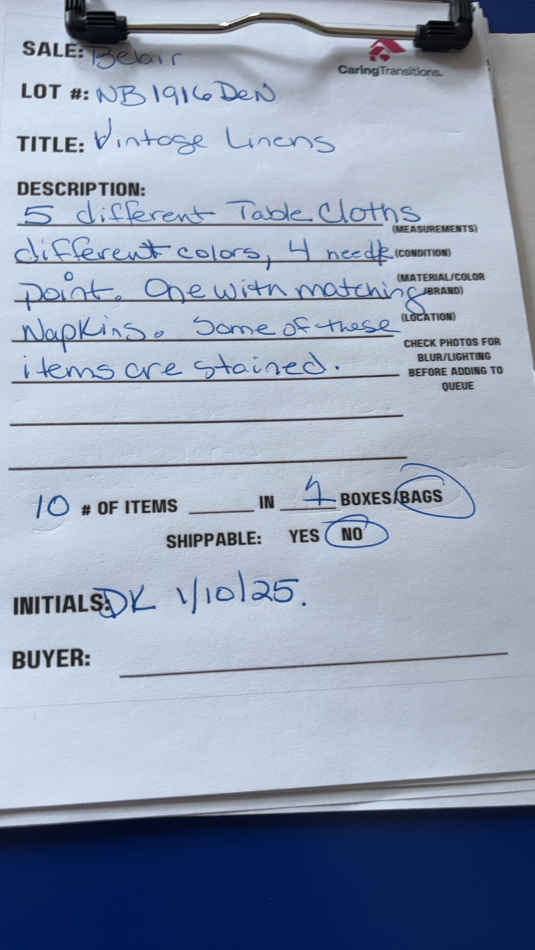 SALE: Belair
CaringTransitions.
LOT #: NB1916DeN
TITLE: Vintage Linens
DESCRIPTION:
5 different Table Cloths
(MEASUREMENTS)
different colors, 4 needle
(CONDITION)
point. One with matching
(MATERIAL/COLOR
/BRAND)
Napkins. Some of these
(LOCATION)
items are stained.
CHECK PHOTOS FOR
BLUR/LIGHTING
BEFORE ADDING TO
QUEUE
10 # OF ITEMS ______ IN 1 BOXES/BAGS
SHIPPABLE: YES NO
INITIALS: DK 1/10/25.
BUYER: